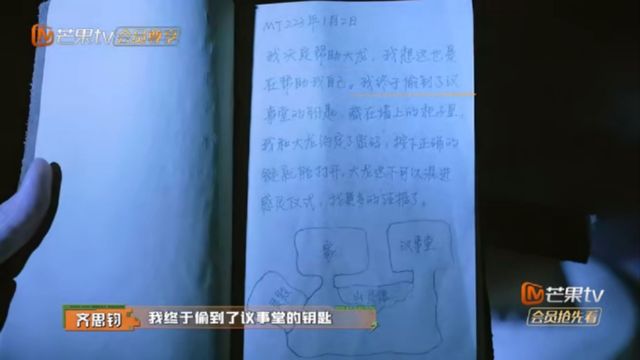 芒果tv
会员尊享
MT223年1月2日
我决定帮助大龙，我想这也是
在帮助我自己。我终于偷到了议
事堂的钥匙，藏在墙上的柜子里
我和大龙约定了密码，按下正确的
键就能打开，大龙
感灵仪式，找更多的证据了。
家
议事堂
芒果tv
会员抢先看
齐思钧
我终于偷到了议事堂的钥匙